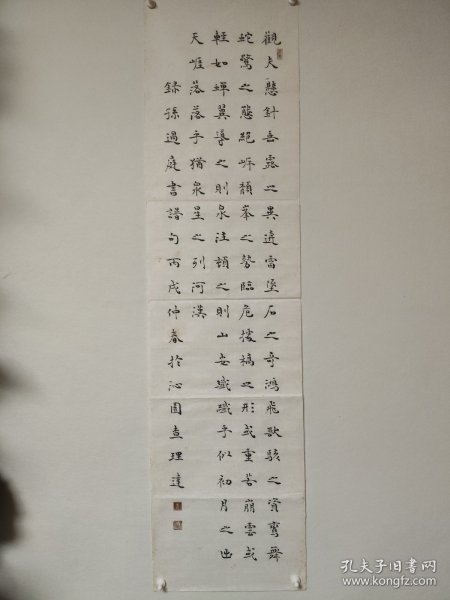 觀夫懸針垂露之異奔雷墜石之奇鴻飛獸駭之資鸞舞
蛇驚之態絕岸頹峯之勢臨危據槁之形或重若崩雲或
輕如蟬翼導之則泉注頓之則山安纖纖乎似初月之出
天崖落落乎猶眾星之列河漢
錄孫過庭書譜句丙戌仲春於沁園查理達
孔夫子旧书网
www.kongfz.com